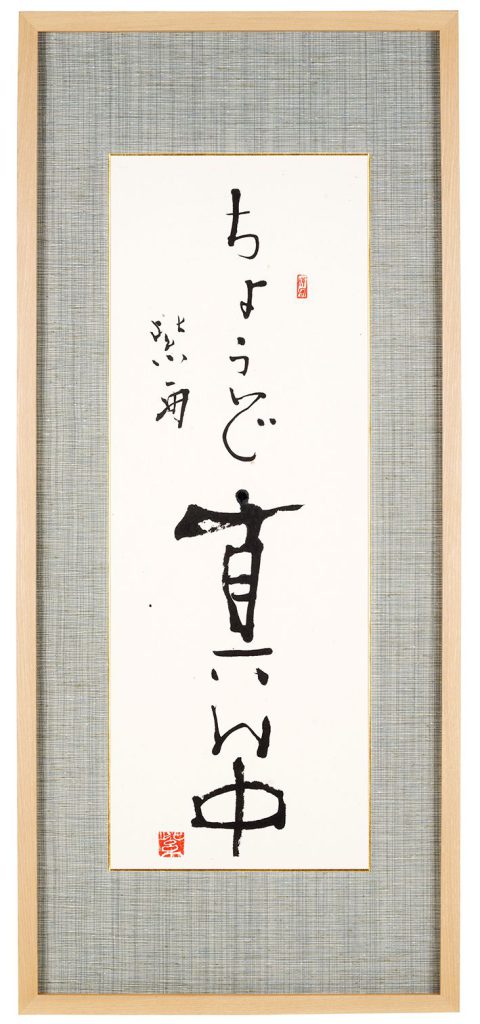 ちょうど真ん中
紫舟